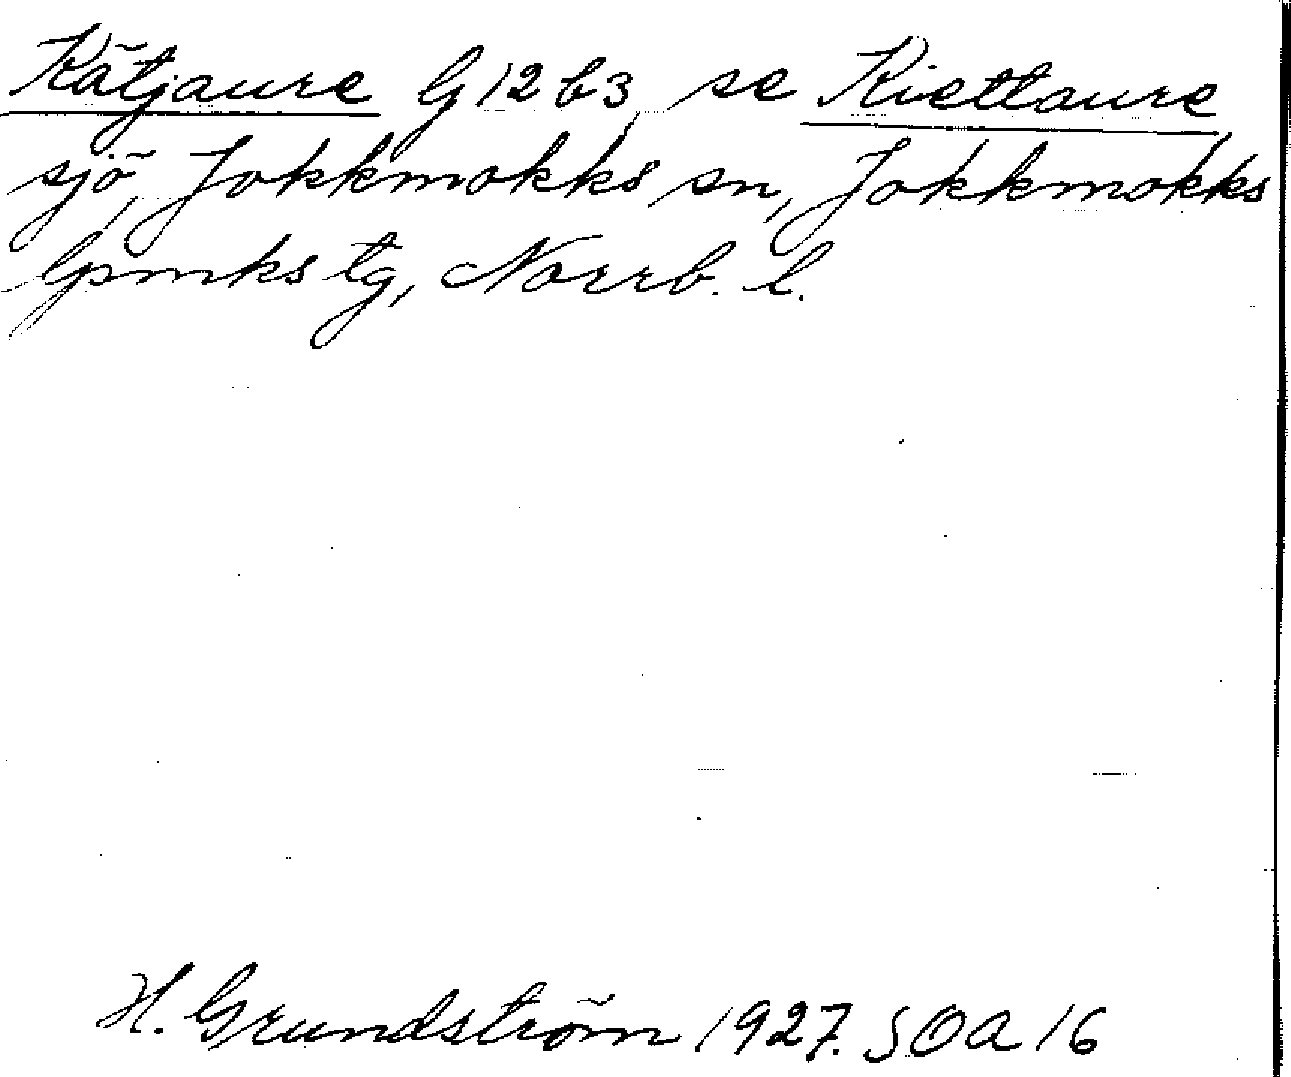 Kätjaure G 12 b 3 se Riettaure
sjö, Jokkmokks sn, Jokkmokks
lpmks tg, Norrb. l.
H. Grundström 1927. SOA 16